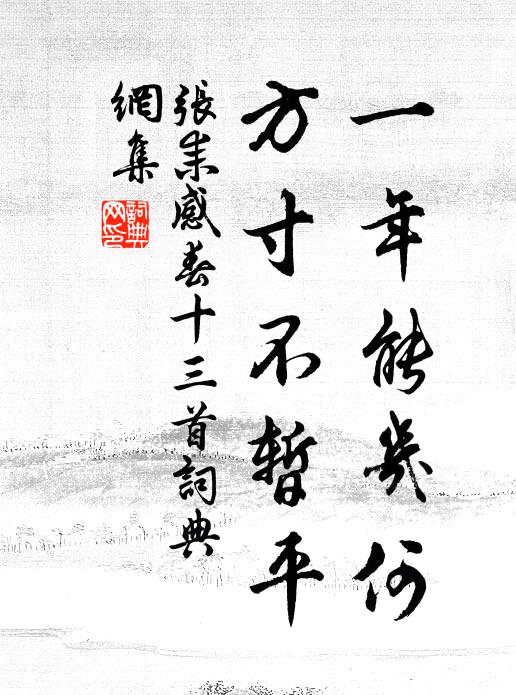 一年能幾何
方寸不暫平
張耒感春十三首詞典
網集
詞典網印